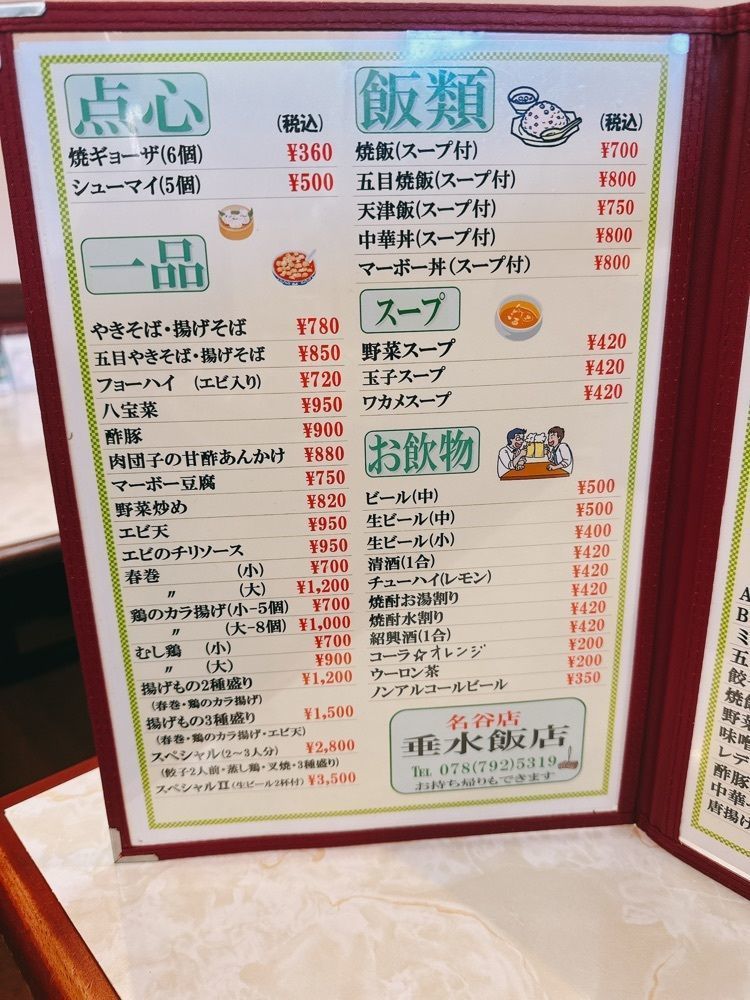 点心
(税込)
焼ギョーザ(6個) ¥360
シューマイ(5個) ¥500
一品
やきそば・揚げそば ¥780
五目やきそば・揚げそば ¥850
フョーハイ (エビ入り) ¥720
八宝菜 ¥950
酢豚 ¥900
肉団子の甘酢あんかけ ¥880
マーボー豆腐 ¥750
野菜炒め ¥820
エビ天 ¥950
エビのチリソース ¥950
春巻 (小) ¥700
〃 (大) ¥1,200
鶏のカラ揚げ(小-5個) ¥700
〃 (大-8個) ¥1,000
むし鶏 (小) ¥700
〃 (大) ¥900
揚げもの2種盛り ¥1,200
(春巻・鶏のカラ揚げ)
揚げもの3種盛り ¥1,500
(春巻・鶏のカラ揚げ・エビ天)
スペシャル(2〜3人分) ¥2,800
(餃子2人前・蒸し鶏・叉焼・3種盛り)
スペシャルⅡ(生ビール2杯付) ¥3,500
飯類
(税込)
焼飯(スープ付) ¥700
五目焼飯(スープ付) ¥800
天津飯(スープ付) ¥750
中華丼(スープ付) ¥800
マーボー丼(スープ付) ¥800
スープ
野菜スープ ¥420
玉子スープ ¥420
ワカメスープ ¥420
お飲物
ビール(中) ¥500
生ビール(中) ¥500
生ビール(小) ¥400
清酒(1合) ¥420
チューハイ(レモン) ¥420
焼酎お湯割り ¥420
焼酎水割り ¥420
紹興酒(1合) ¥420
コーラ☆オレンジ ¥200
ウーロン茶 ¥200
ノンアルコールビール ¥350
名谷店
垂水飯店
TEL 078(792)5319
お持ち帰りもできます
A
B
ミ
五
餃子
焼飯
野菜
味噌
レデ
酢豚
中華
唐揚げ